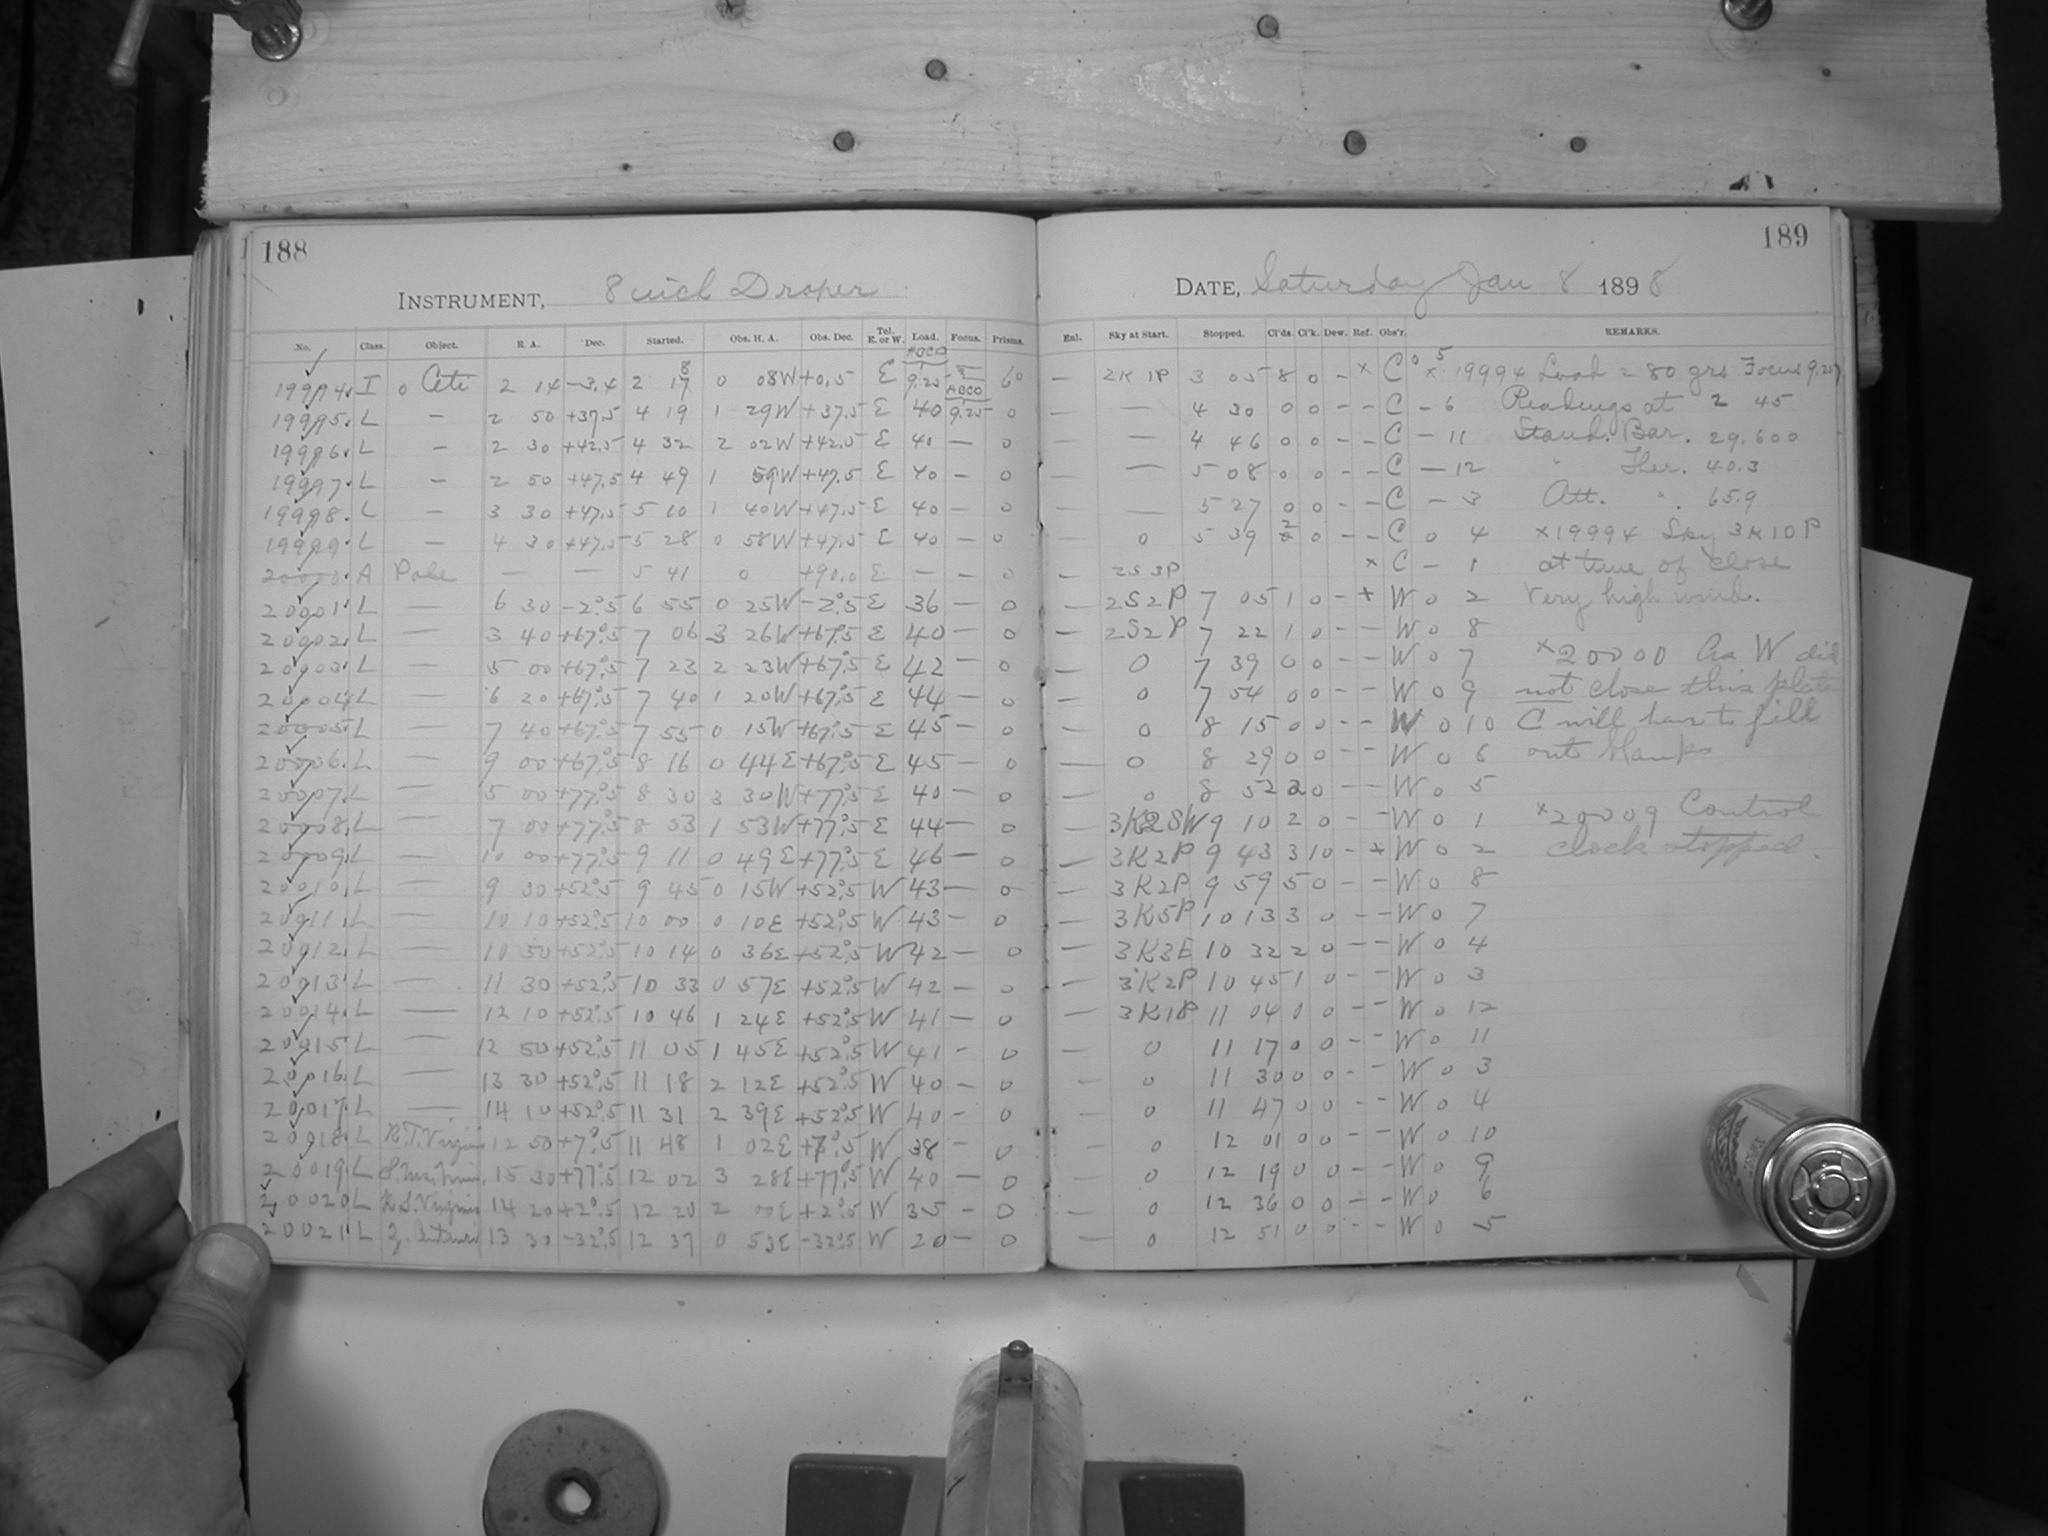 188
INSTRUMENT, 8 inch Draper
No. Class. Object. R. A. Dec. Started. Obs. H. A. Obs. Dec. Tel. E. or W. Load. Focus. Prisms.
19994. I o Ceti 2 14 -3.4 2 17 0 08W +0.5 E 9.25 60
19995. L — 2 50 +37.5 4 19 1 29W +37.5 E 40 9.25 0
19996. L — 2 30 +42.5 4 32 2 02W +42.5 E 40 — 0
19997. L — 2 50 +47.5 4 49 1 59W +47.5 E 40 — 0
19998. L — 3 30 +47.5 5 10 1 40W +47.5 E 40 — 0
19999. L — 4 30 +47.5 5 28 0 58W +47.5 E 40 — 0
20000. A Pole — — 5 41 0 +90.0 E — — 0
20001. L — 6 30 -2°.5 6 55 0 25W -2°.5 E 36 — 0
20002. L — 3 40 +67°.5 7 06 3 26W +67°.5 E 40 — 0
20003. L — 5 00 +67°.5 7 23 2 23W +67°.5 E 42 — 0
20004. L — 6 20 +67°.5 7 40 1 20W +67°.5 E 44 — 0
20005. L — 7 40 +67°.5 7 55 0 15W +67°.5 E 45 — 0
20006. L — 9 00 +67°.5 8 16 0 44E +67°.5 E 45 — 0
20007. L — 5 00 +77°.5 8 30 3 30W +77°.5 E 40 — 0
20008. L — 7 00 +77°.5 8 53 1 53W +77°.5 E 44 — 0
20009. L — 10 00 +77°.5 9 11 0 49E +77°.5 E 46 — 0
20010. L — 9 30 +52°.5 9 45 0 15W +52°.5 W 43 — 0
20011. L — 10 10 +52°.5 10 00 0 10E +52°.5 W 43 — 0
20012. L — 10 50 +52°.5 10 14 0 36E +52°.5 W 42 — 0
20013. L — 11 30 +52°.5 10 33 0 57E +52°.5 W 42 — 0
20014. L — 12 10 +52°.5 10 46 1 24E +52°.5 W 41 — 0
20015. L — 12 50 +52°.5 11 05 1 45E +52°.5 W 41 — 0
20016. L — 13 30 +52°.5 11 18 2 12E +52°.5 W 40 — 0
20017. L — 14 10 +52°.5 11 31 2 39E +52°.5 W 40 — 0
20018. L 12 50 +7°.5 11 48 1 02E +7°.5 W 38 — 0
20019. L 15 30 +77°.5 12 02 3 28E +77°.5 W 40 — 0
20020 L 14 20 +2°.5 12 20 2 00E +2°.5 W 35 — 0
20021. L 13 30 -32°.5 12 37 0 53E -32°.5 W 20 — 0
189
DATE, Saturday Jan 8 1898
Enl. Sky at Start. Stopped. Cl'ds. Cl'k. Dew. Ref. Obs'r. REMARKS.
— 2K1P 3 05 8 0 - x C 0 5 x 19994 Load 280 grs Focus 9.25
— 4 30 0 0 - - C - 6 Readings at 2 45
— 4 46 0 0 - - C - 11 Stand. Bar. 29.600
— 5 08 0 0 - - C - 12 " Ther. 40.3
— 5 27 0 0 - - C - 3 Att. " 65.9
0 5 39 2 0 - - C 0 4 x19994 Sky 3K10P
— 2S3P x C - 1 at time of close
— 2S2P 7 05 1 0 - x W 0 2 Very high wind.
— 2S2P 7 22 1 0 - - W 0 8
— 0 7 39 0 0 - - W 0 7 x20000 As W did
— 0 7 54 0 0 - - W 0 9 not close this plate
— 0 8 15 0 0 - - W 0 10 C will have to fill
— 0 8 29 0 0 - - W 0 6 out blanks
— 0 8 52 2 0 - - W 0 5
— 3K2SW 9 10 2 0 - - W 0 1 x20009 Control
— 3K2P 9 43 3 10 - x W 0 2 clock stopped.
— 3K2P 9 59 5 0 - - W 0 8
— 3K5P 10 13 3 0 - - W 0 7
— 3K3E 10 32 2 0 - - W 0 4
— 3K2P 10 45 1 0 - - W 0 3
— 3K1P 11 04 0 0 - - W 0 12
— 0 11 17 0 0 - - W 0 11
— 0 11 30 0 0 - - W 0 3
— 0 11 47 0 0 - - W 0 4
— 0 12 01 0 0 - - W 0 10
— 0 12 19 0 0 - - W 0 9
— 0 12 36 0 0 - - W 0 6
— 0 12 51 0 0 - - W 0 5